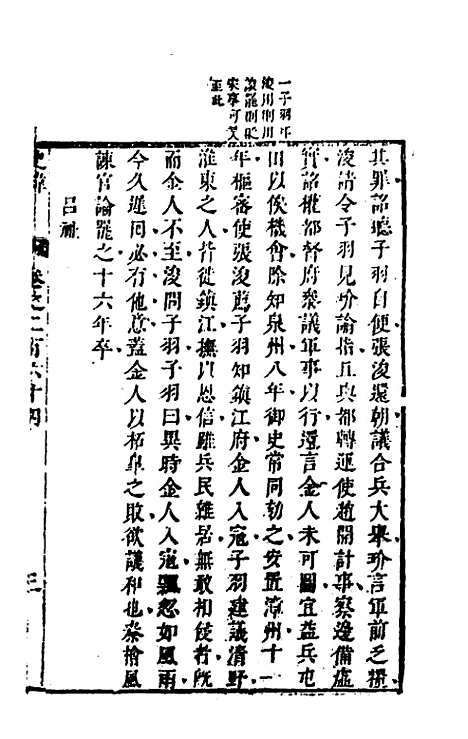 一子羽耳
浚用則用
浚罷則罷
宋事可笑
至此
其罪詔聽子羽自便張浚還朝議合兵大舉玠言軍前乏糧
浚請令子羽見玠諭指且與都轉運使趙開計事察邊備虛
實詔權都督府參議軍事以行還言金人未可圖宜益兵屯
田以俟機會除知泉州八年御史常同劾之安置漳州十一
年樞密使張浚薦子羽知鎮江府金人入寇子羽建議清野
淮東之人皆徙鎮江撫以恩信雖兵民雜居無敢相侵者既
而金人不至浚問子羽子羽曰異時金人入寇飄忽如風雨
今久遲回必有他意蓋金人以柘皋之敗欲議和也秦檜風
諫官論罷之十六年卒
呂祉
史緯
卷之二百六十四
三